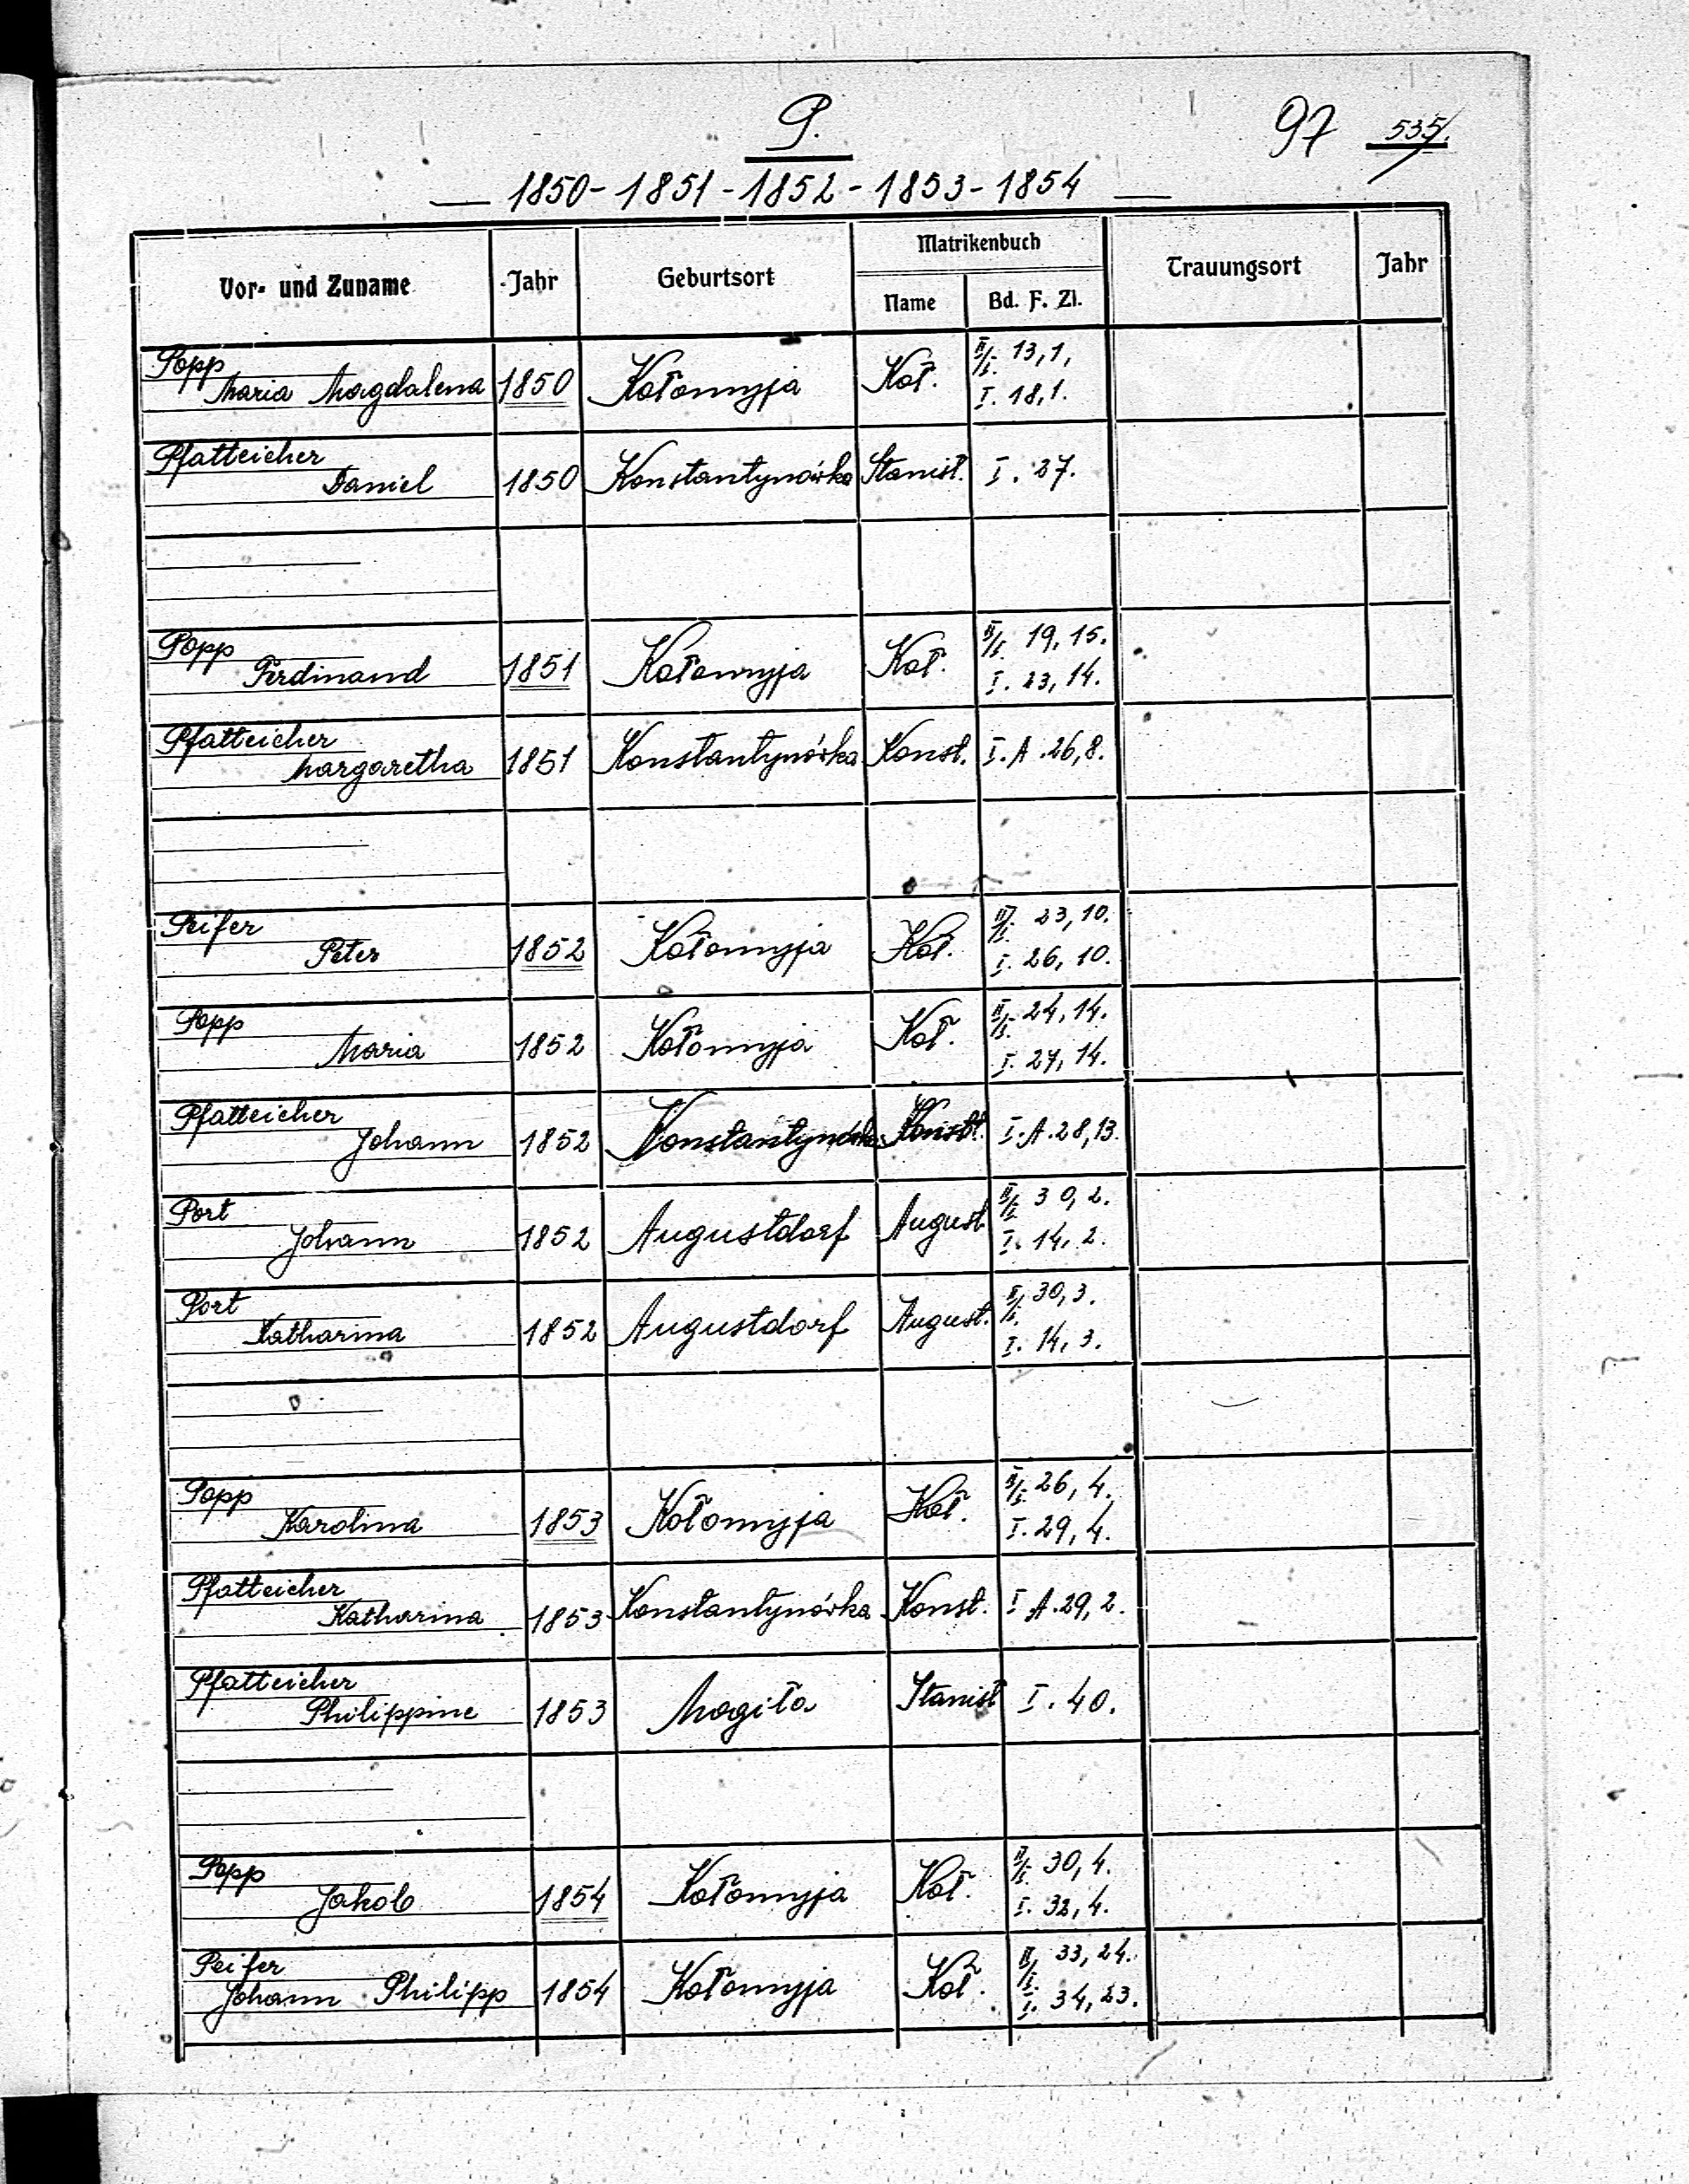 P.
97 535.
1850-1851-1852-1853-1854
Vor- und Zuname Jahr Geburtsort Matrikenbuch Trauungsort Jahr
Name Bd. F. Zl.
Popp II/I. 13,1,
Maria Magdalena 1850 Kołomyja Koł. I. 18,1.
Pfatteicher
Daniel 1850 Konstantynówka Stanisł. I. 27.
Popp II/I. 19,15.
Ferdinand 1851 Kołomyja Koł. I. 23,14.
Pfatteicher
Margaretha 1851 Konstantynówka Konst. I.A.26,8.
Peifer II/I. 23,10.
Peter 1852 Kołomyja Koł. I. 26,10.
Popp II/I. 24,14.
Maria 1852 Kołomyja Koł. I. 27,14.
Pfatteicher
Johann 1852 Konstantynówka Konst. I.A.28,13.
Port II/I. 30,2.
Johann 1852 Augustdorf August. I. 14,2.
Port II/I. 30,3.
Katharina 1852 Augustdorf August. I. 14,3.
Popp II/I. 26,4.
Karolina 1853 Kołomyja Koł. I. 29,4.
Pfatteicher
Katharina 1853 Konstantynówka Konst. I A.29,2.
Pfatteicher
Philippine 1853 Mogiła Stanisł I. 40.
Popp II/I. 30,4.
Jakob 1854 Kołomyja Koł. I. 32,4.
Peifer II/I. 33,24.
Johann Philipp 1854 Kołomyja Koł. I. 34,23.